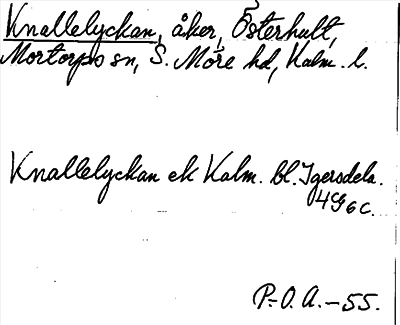 Knallelyckan, åker, Österhult,
Mortorps sn, S. Möre hd, Kalm. l.
Knallelyckan ek Kalm. bl. Igersdela.
4G6c.
P.-O. A. -55.